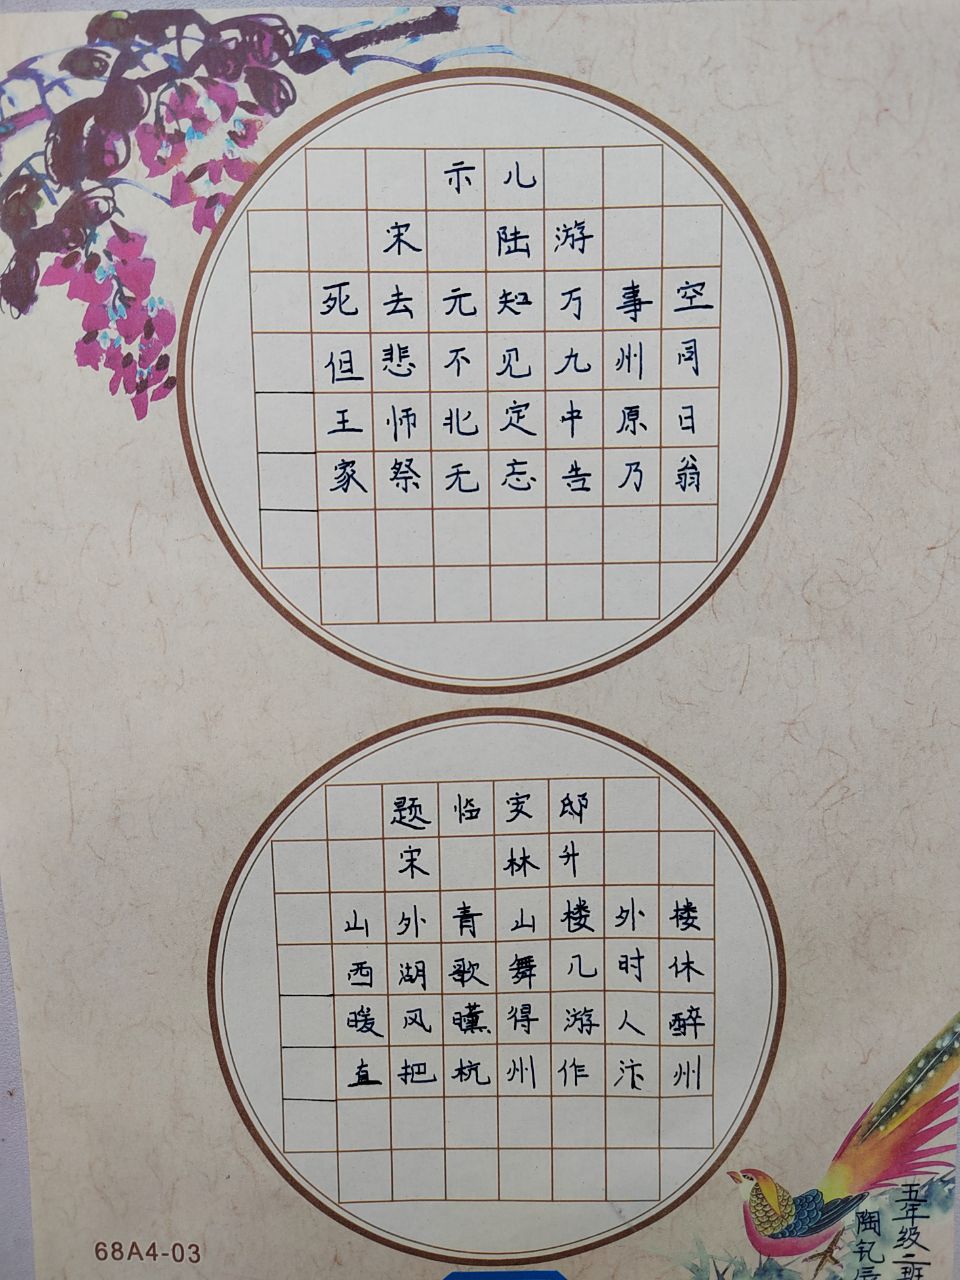 示儿
宋 陆游
死去元知万事空
但悲不见九州同
王师北定中原日
家祭无忘告乃翁
题临安邸
宋 林升
山外青山楼外楼
西湖歌舞几时休
暖风曛得游人醉
直把杭州作汴州
五年级二班
陶
68A4-03